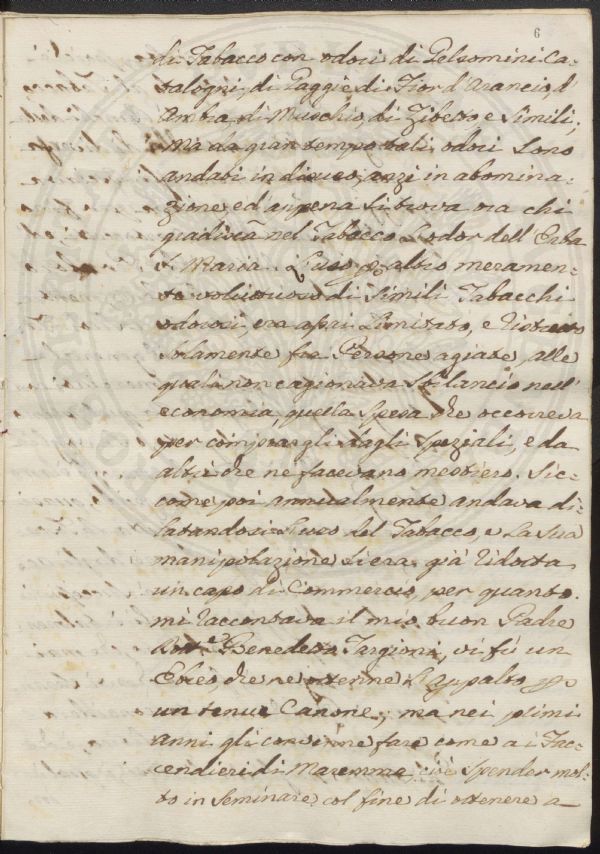 6
di Tabacco con odori di Gelsomini Ca-
talogni, di Gaggie di Fior d'Arancio, d'
Ambra di Muschio, di Zibetto e Simili;
Mà da gran tempo tali odori Sono
andati in disuso, anzi in abomina-
zione ed appena Si trova ora chi
gradisca nel Tabacco L'odor dell'Erba
S. Maria. L'uso per altro meramen-
te voluttuoso di Simili Tabacchi
odorosi, era assai Limitato, e ristretto
Solamente fra Persone agiate, alle
quali non cagionava Sbilancio nell'
economia, quella Spesa che occorreva
per comprargli dagli Speziali, e da
altri che ne facevano mestiero. Sic-
come poi annualmente andava di-
latandosi L'uso del Tabacco, e La Sua
manipolazione Si era già ridotta
un capo di Commercio, per quanto
mi raccontava il mio buon Padre
Dott.e Benedetto Targioni, vi fù un
Ebreo, che ne ottenne L'Appalto per
un tenue Canone; ma nei primi
anni gli convenne fare come a i Fac-
cendieri di Maremma, cioè Spender mol-
to in Seminare, col fine di ottenere a-